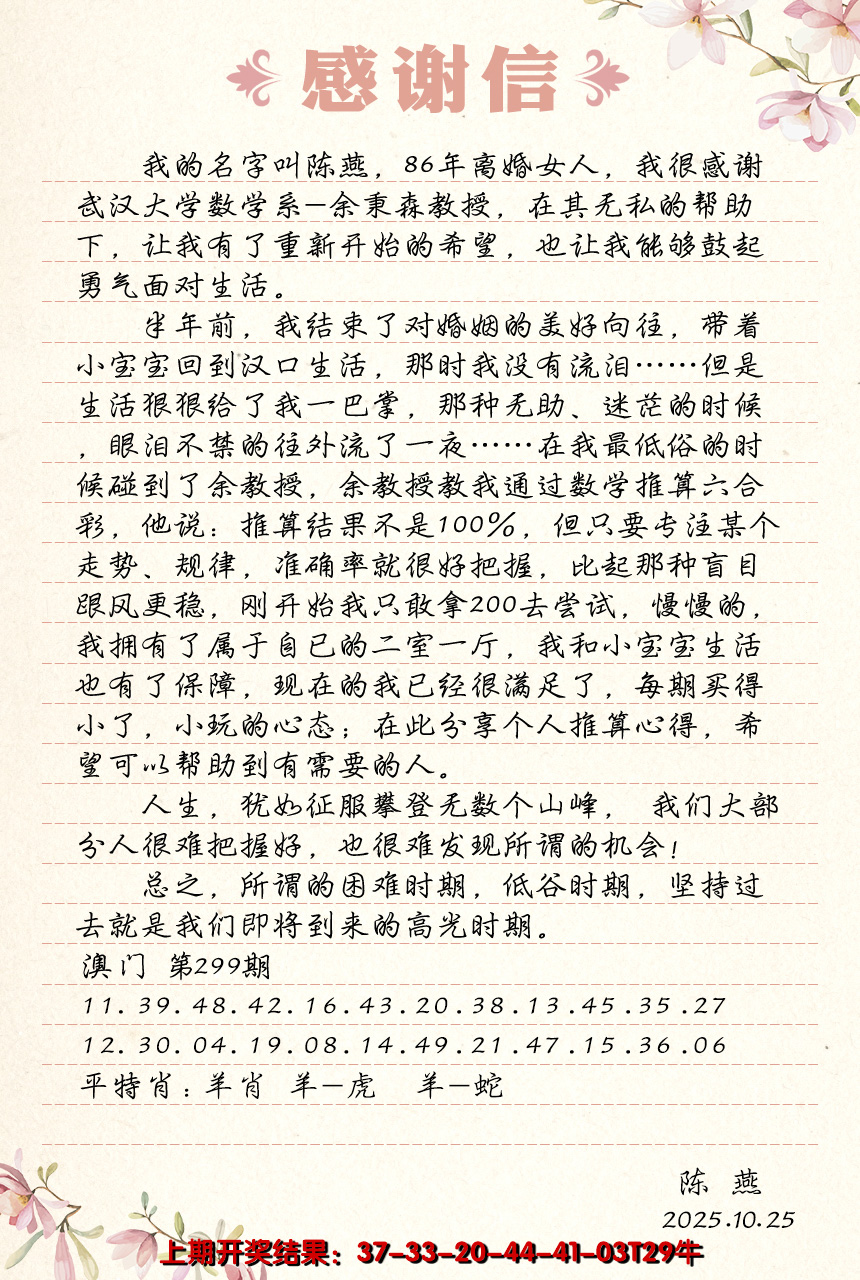 感谢信
我的名字叫陈燕，86年离婚女人，我很感谢
武汉大学数学系—余秉森教授，在其无私的帮助
下，让我有了重新开始的希望，也让我能够鼓起
勇气面对生活。
半年前，我结束了对婚姻的美好向往，带着
小宝宝回到汉口生活，那时我没有流泪……但是
生活狠狠给了我一巴掌，那种无助、迷茫的时候
，眼泪不禁的往外流了一夜……在我最低俗的时
候碰到了余教授，余教授教我通过数学推算六合
彩，他说：推算结果不是100%，但只要专注某个
走势、规律，准确率就很好把握，比起那种盲目
跟风更稳，刚开始我只敢拿200去尝试，慢慢的，
我拥有了属于自已的二室一厅，我和小宝宝生活
也有了保障，现在的我已经很满足了，每期买得
小了，小玩的心态；在此分享个人推算心得，希
望可以帮助到有需要的人。
人生，犹如征服攀登无数个山峰， 我们大部
分人很难把握好，也很难发现所谓的机会！
总之，所谓的困难时期，低谷时期，坚持过
去就是我们即将到来的高光时期。
澳门 第299期
11.39.48.42.16.43.20.38.13.45.35.27
12.30.04.19.08.14.49.21.47.15.36.06
平特肖：羊肖 羊—虎 羊—蛇
陈 燕
2025.10.25
上期开奖结果：37-33-20-44-41-03T29牛